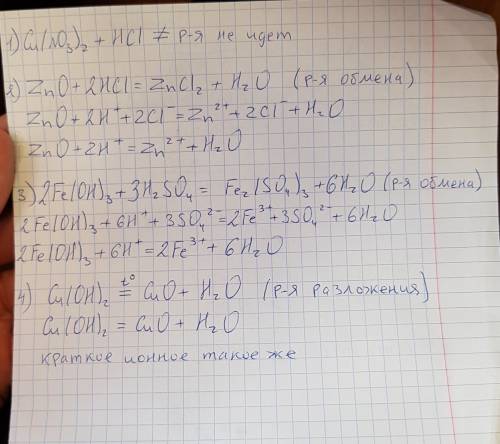 1) Cu(NO₃)₂ + HCl ≠ р-я не идет
2) ZnO + 2HCl = ZnCl₂ + H₂O (р-я обмена)
ZnO + 2H⁺ + 2Cl⁻ = Zn²⁺ + 2Cl⁻ + H₂O
ZnO + 2H⁺ = Zn²⁺ + H₂O
3) 2Fe(OH)₃ + 3H₂SO₄ = Fe₂(SO₄)₃ + 6H₂O (р-я обмена)
2Fe(OH)₃ + 6H⁺ + 3SO₄²⁻ = 2Fe³⁺ + 3SO₄²⁻ + 6H₂O
2Fe(OH)₃ + 6H⁺ = 2Fe³⁺ + 6H₂O
4) Cu(OH)₂ =t°= CuO + H₂O (р-я разложения)
Cu(OH)₂ = CuO + H₂O
краткое ионное такое же